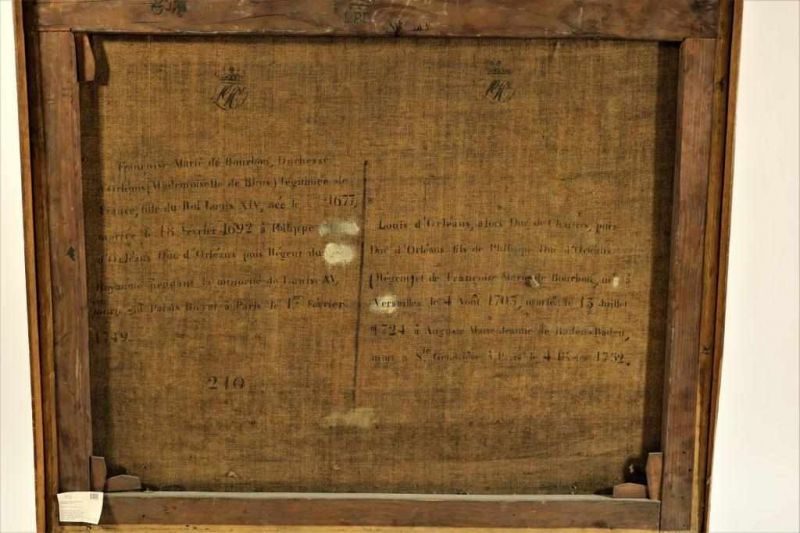 LPO
LPO
LPO
Françoise Marie de Bourbon, Duchesse
d'Orléans, (Mademoiselle de Blois) légitimée de
France, fille du Roi Louis XIV, née le 1677,
mariée le 18 Février 1692 à Philippe
d'Orléans Duc d'Orléans puis Régent du
Royaume pendant la minorité de Louis XV,
morte au Palais Royal à Paris le 1er Février
1749.
210
Louis d'Orléans, alors Duc de Chartres, puis
Duc d'Orléans fils de Philippe Duc d'Orléans
(Régent) et de Françoise Marie de Bourbon, né à
Versailles le 4 Août 1703, marié le 13 Juillet
1724 à Auguste Marie Jeanne de Baden-Baden,
mort à Ste Geneviève à Paris le 4 Février 1752.